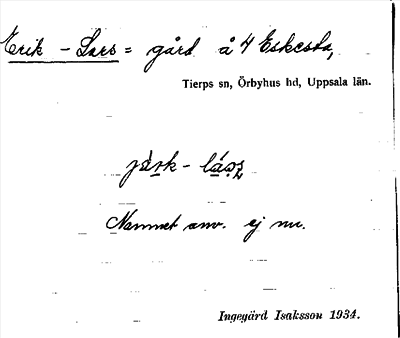 Erik - Lars = gård å 4 Eskesta,
Tierps sn, Örbyhus hd, Uppsala län.
Namnet anv. ej nu.
Ingegärd Isaksson 1934.